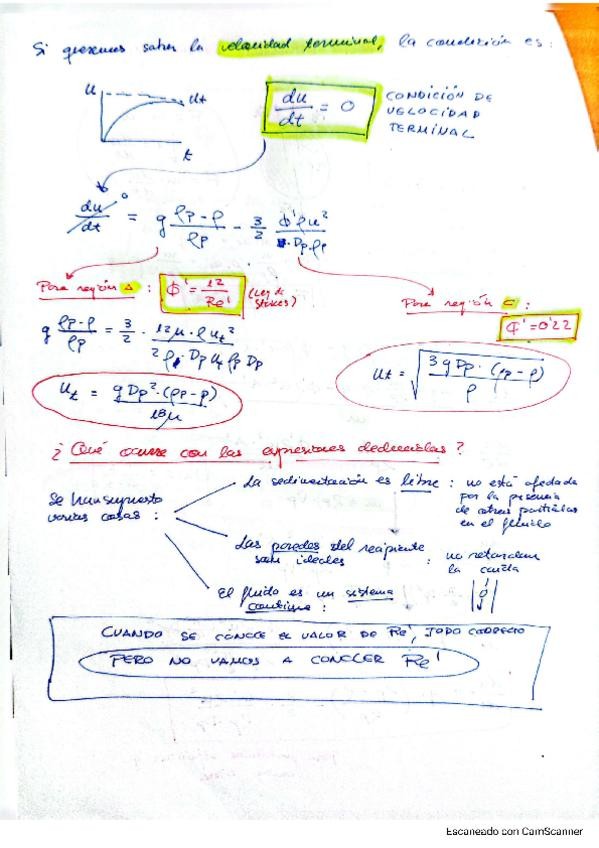 Si queremos saber la velocidad terminal, la condición es:
u
ut
t
du/dt = 0
CONDICIÓN DE
VELOCIDAD
TERMINAL
du/dt = g (ρp - ρ)/ρp - 3/2 Φ'ρu²/(Dp·ρp)
0
Para región A : Φ' = 12/Re' (Ley de
Stokes)
Para región C :
Φ' = 0'22
g (ρp - ρ)/ρp = 3/2 · 12μ · ρ ut²/(2 ρ · Dp ut ρp Dp)
ut = g Dp² · (ρp - ρ)/18μ
ut = √(3 g Dp · (ρp - ρ)/ρ)
¿Qué ocurre con las expresiones deducidas?
Se han supuesto
varias cosas :
La sedimentación es libre : no está afectada
por la presencia
de otras partículas
en el fluido
Las paredes del recipiente
son ideales : no retardan
la caída
El fluido es un sistema
continuo :
CUANDO SE CONOCE EL VALOR DE Re', TODO CORRECTO
PERO NO VAMOS A CONOCER Re'
Escaneado con CamScanner